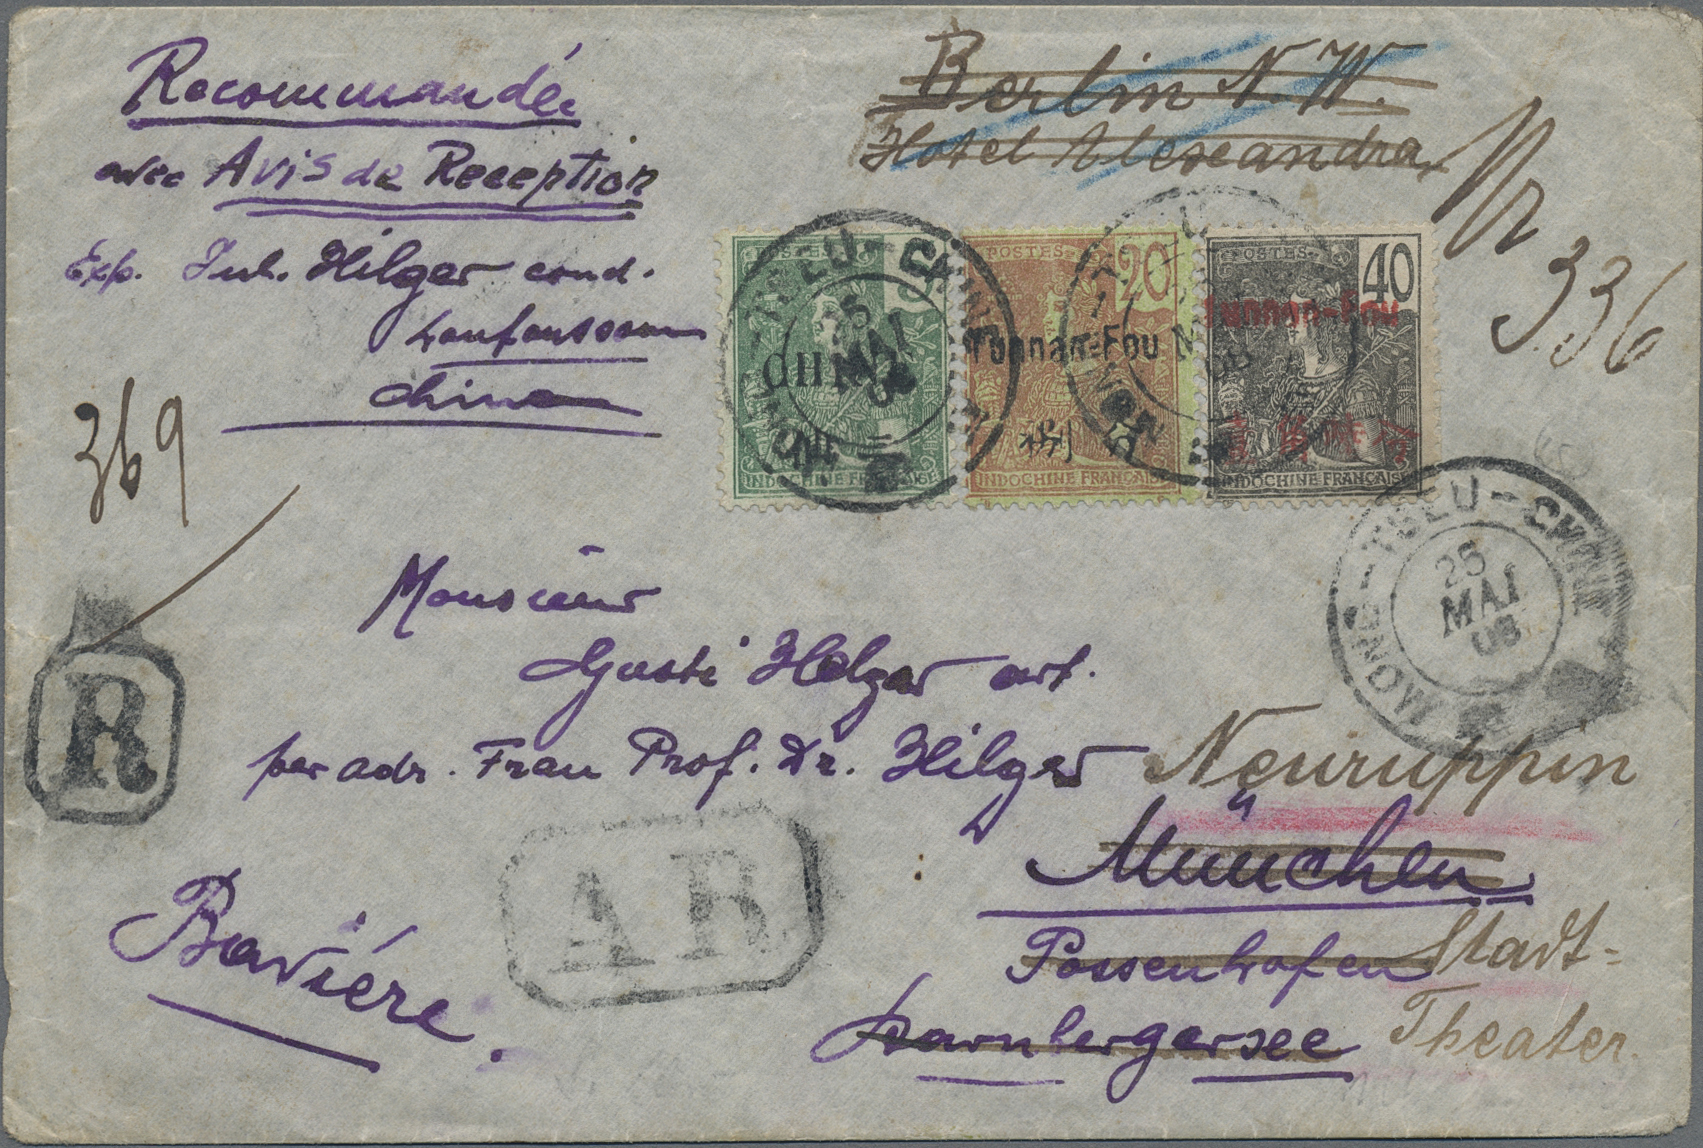 Recommandée
avec Avis de Reception
Exp. Jul. Hilger cond.
Chine
369
Berlin N. W.
Hotel Alexandra
Nr 336
POSTES
20
40
CHINE
Yunnan-Fou
Yunnan-Fou
INDOCHINE FRANÇAISE
INDOCHINE FRANÇAISE
INDOCHINE FRANÇAISE
MONG-TSEU-CHINE
25
MAI
08
MONG-TSEU-CHINE
25
MAI
08
R
Monsieur
Gusti Hilger art.
per adr. Frau Prof. Dr. Hilger Neuruppin
München
AR
Bavière.
Possenhofen Stadt-
Starnbergersee Theater.